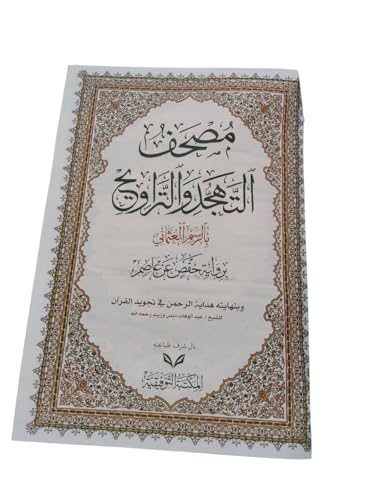 مصحف
التهجد والتراويح
بالرسم العثماني
برواية حفص عن عاصم
وبنهايته هداية الرحمن في تجويد القرآن
للشيخ / عبد الوهاب دبس وزيت رحمه الله
نال شرف طباعته
المكتبة التوفيقية